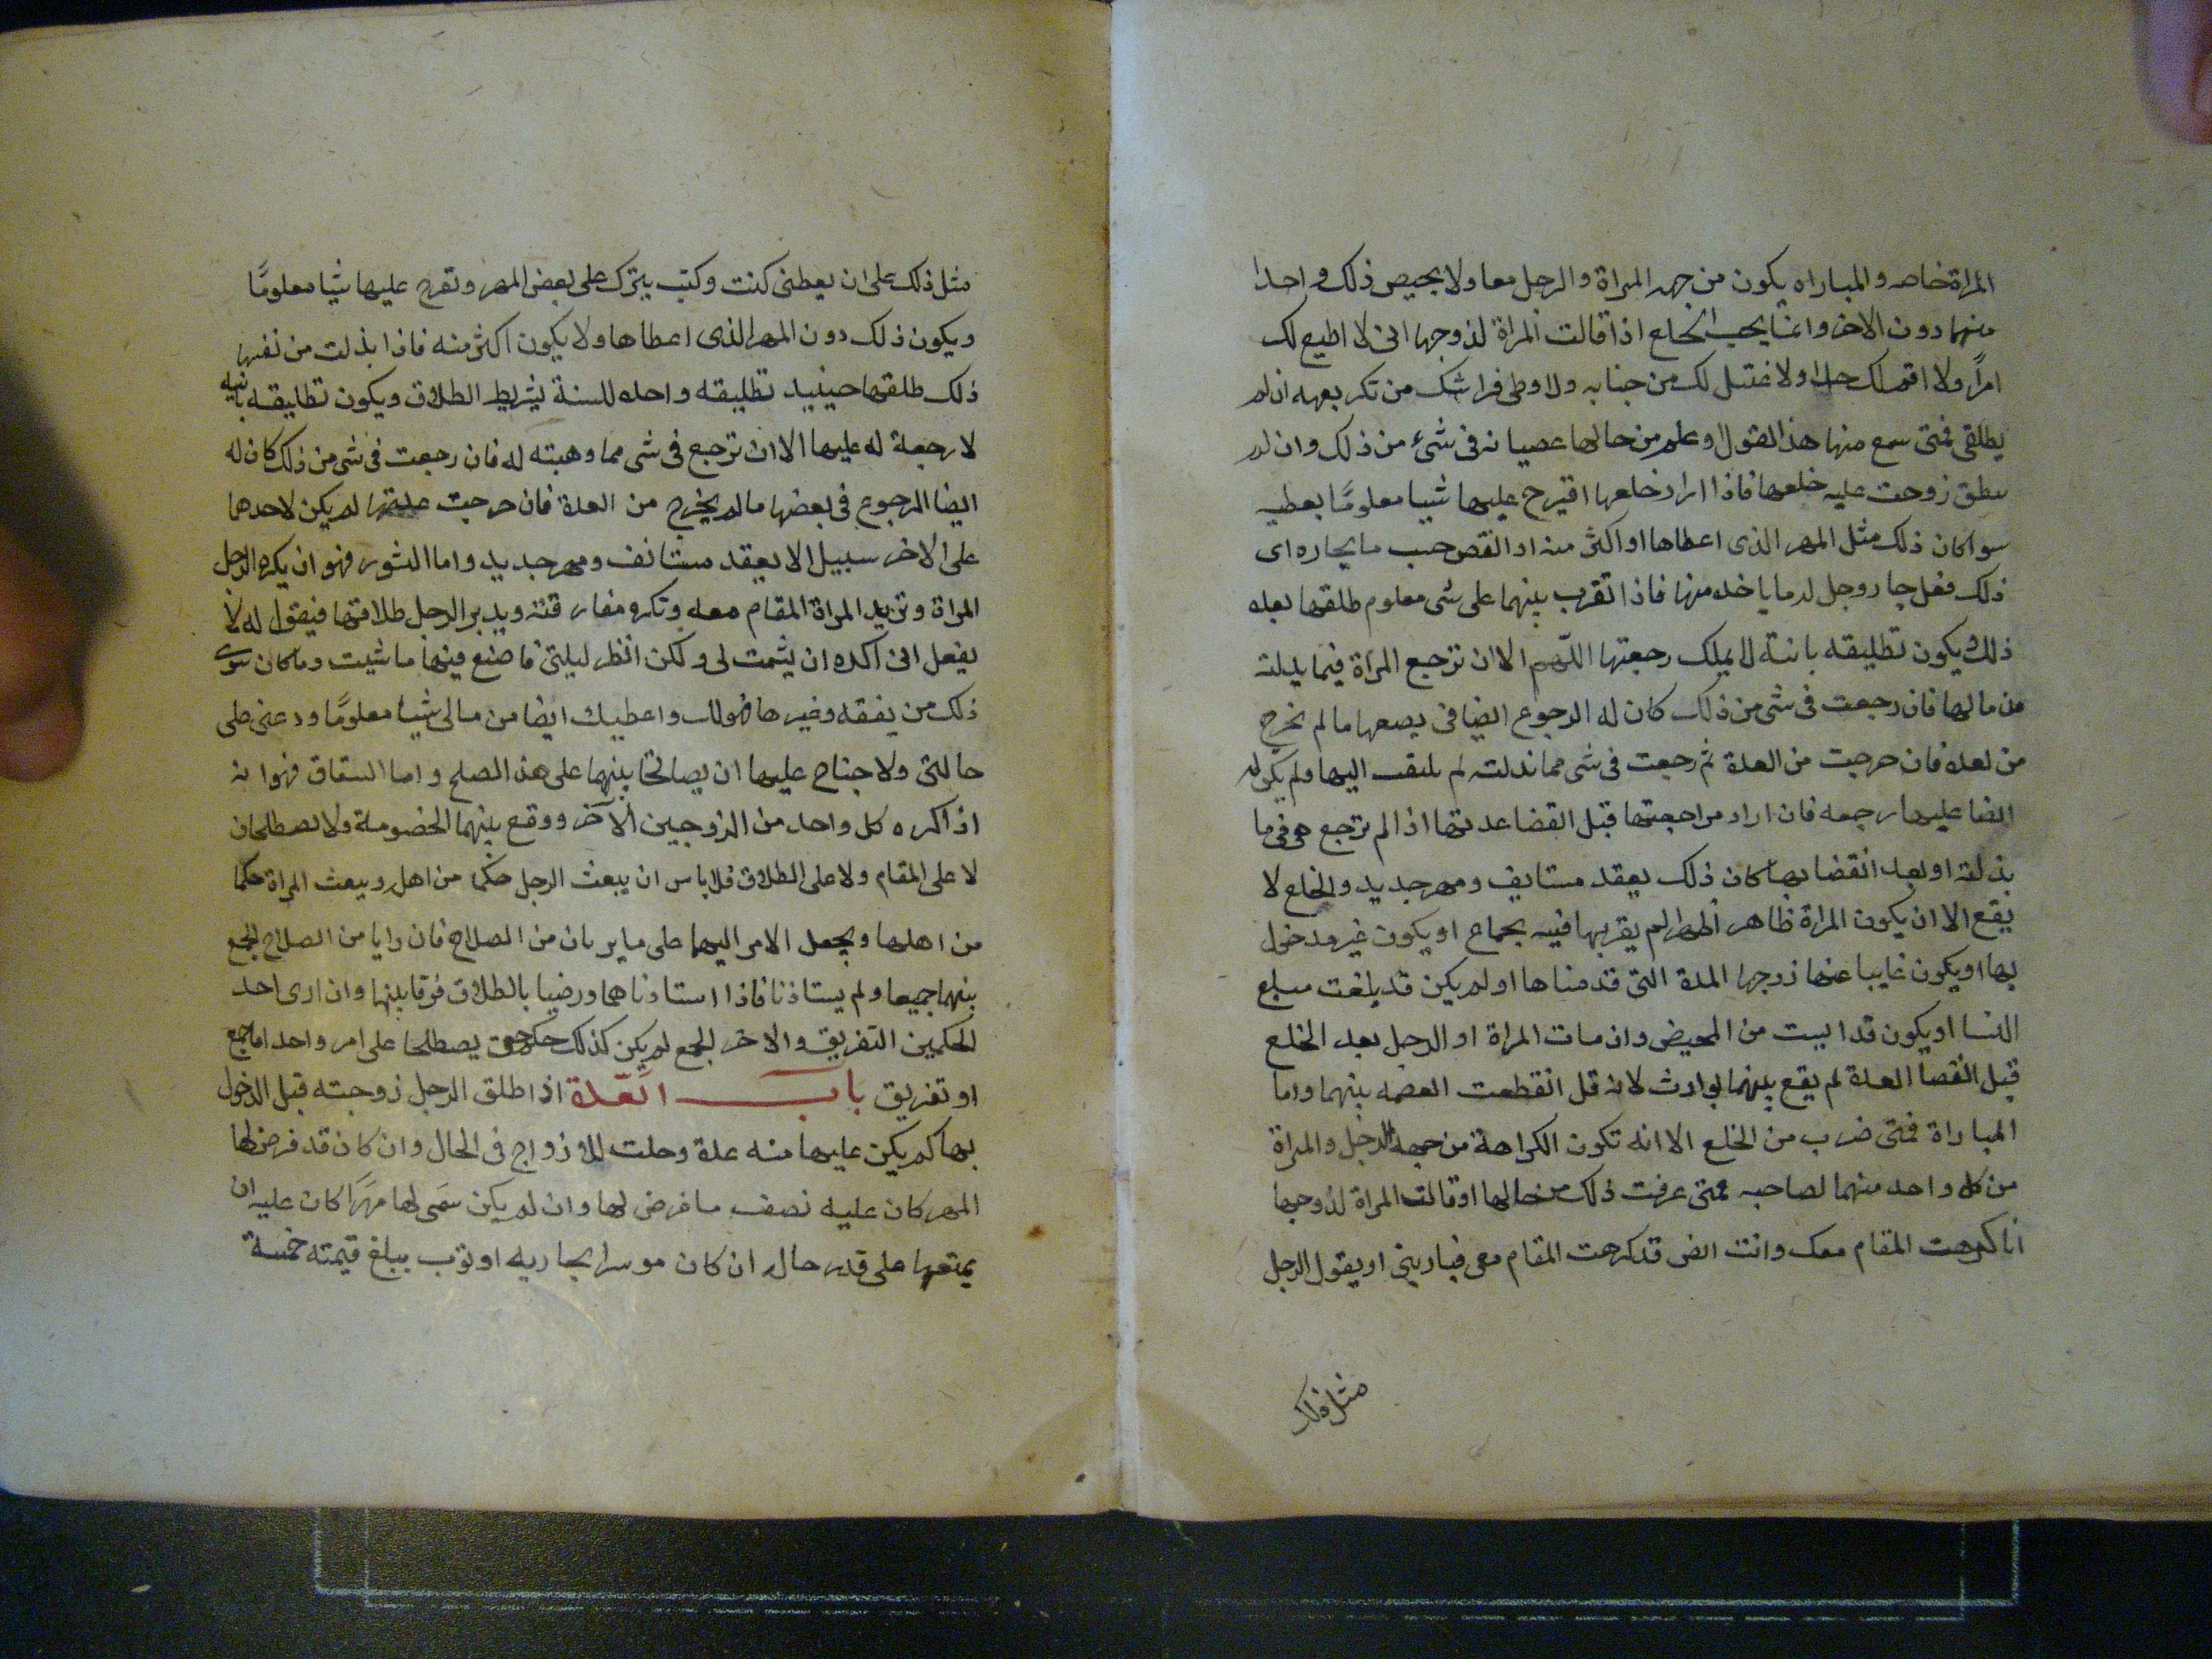 المراة خاصه والمباراه يكون من جهه المراة والرجل معا ولا يحيص ذلك واحدا
منهما دون الاخر وانما يجب الخلع اذا قالت المراة لزوجها انى لا اطيع لك
امرًا ولا اقم لك حدا ولا غتسل لك من جنابه ولا وطى فراشك من تكربعهه ان لم
يطلقى فمتى سمع منها هذا القول او علم من حالها عصيانه فى شئ من ذلك وان لم
سطق زوحت عليه خلعها فاذا اراد خلعها اقترح عليها شيا معلومًا بعطيه
سوا كان ذلك مثل المهر الذى اعطاها او اكثر منه او انقص حسب ما يحاره اى
ذلك فعل جاز وحل له ما ياخذه منها فاذا تقرب بينهما على شى معلوم طلقها بعده
ذلك ويكون تطليقه بائنة لا يملك رجعتها اللّهم الا ان ترجع المراة فيما بدلته
من مالها فان رجعت فى شى من ذلك كان له الرجوع ايضا فى بصعها ما لم يخرج
من لعده فان خرجت من العدة ثم رجعت فى شى مما بذلته لم يلتفت اليها ولم يكن له
ايضا عليها رجعه فان اراد مراجعتها قبل انقضا عدتها اذا لم ترجع هى فى ما
بذلته او بعد انقضايها كان ذلك بعقد مستانف ومهر جديد والخلع لا
يقع الا ان يكون المراة ظاهر اطهرا لم يقربها فيه بجماع او يكون غير مدخول
بها او يكون غايبا عنها زوجها المدة التى قدمناها او لم يكن قد بلغت مبلع
النسا او يكون قد ايست من المحيض وان مات المراة او الرجل بعد الخلع
قبل انقضا العدة لم يقع بينهما توارث لانه قل انقطعت العصمه بينهما واما
المباراة فمتى ضرب من الخلع الا انه تكون الكراهة من جهه الرجل والمراة
من كل واحد منهما لصاحبه فمتى عرفت ذلك من حالها او قالت المراة لزوجها
انا كرهت المقام معك وانت ايض قد كرهت المقام معى فبارينى او يقول الرجل
مثل ذلك
مثل ذلك على ان يعطنى كنت وكتب يترك على بعض المهر وتقرح عليها شيا معلومًا
ويكون ذلك دون المهر الذى اعطاها ولا يكون اكثر منه فاذا بذلت من نفسها
ذلك طلقها حينيد تطليقه واحده للسنة بشرايط الطلاق ويكون تطليقه بائنه
لا رجعة له عليها الا ان ترجع فى شى مما وهبته له فان رجعت فى شى من ذلك كان له
ايضا الرجوع فى بعضها ما لم يخرج من العدة فان خرجت عدتها لم يكن لاحدهما
على الاخر سبيل الا بعقد مستانف ومهر جديد واما النشوز فهو ان يكره الرجل
المراة وتريد المراة المقام معه وتكره مفارقته ويريد الرجل طلاقها فيقول له لا
يفعل انى اكره ان يشمت لى ولكن انظر ليلتى فاصنع فيها ما شيت وما كان سوى
ذلك من نفقه وغيرها فهو لك واعطيك ايضا من مالى شيا معلومًا ودعنى على
حالتى ولا جناح عليها ان يصالحا بينهما على هذا الصلح واما الشقاق فهو انه
اذا كره كل واحد من الزوجين الآخر ووقع بينهما الخصومة ولا يصطلحان
لا على المقام ولا على الطلاق فلا باس ان يبعث الرجل حكما من اهله ويبعث المراة حكما
من اهلها ويجعل الامر اليهما على ما يريان من الصلاح فان رايا من الصلاح الجمع
بينهما جميعا ولم يستاذنا فاذا استاذناهما ورضيا بالطلاق فرقا بينهما وان ارى احد
الحكمين التفريق والاخر الجمع لم يكن كذلك حكم حتى يصطلحا على امر واحد اما جمع
او تفريق باب العّدة اذا طلق الرجل زوجته قبل الدخول
بها لم يكن عليها منه عدة وحلت للازواج فى الحال وان كان قد فرض لها
المهر كان عليه نصف ما فرض لها وان لم يكن سَمى لها مهرًا كان عليه ان
يمتعها على قدر حاله ان كان موسرا بجاريه او ثوب يبلغ قيمته خمسة